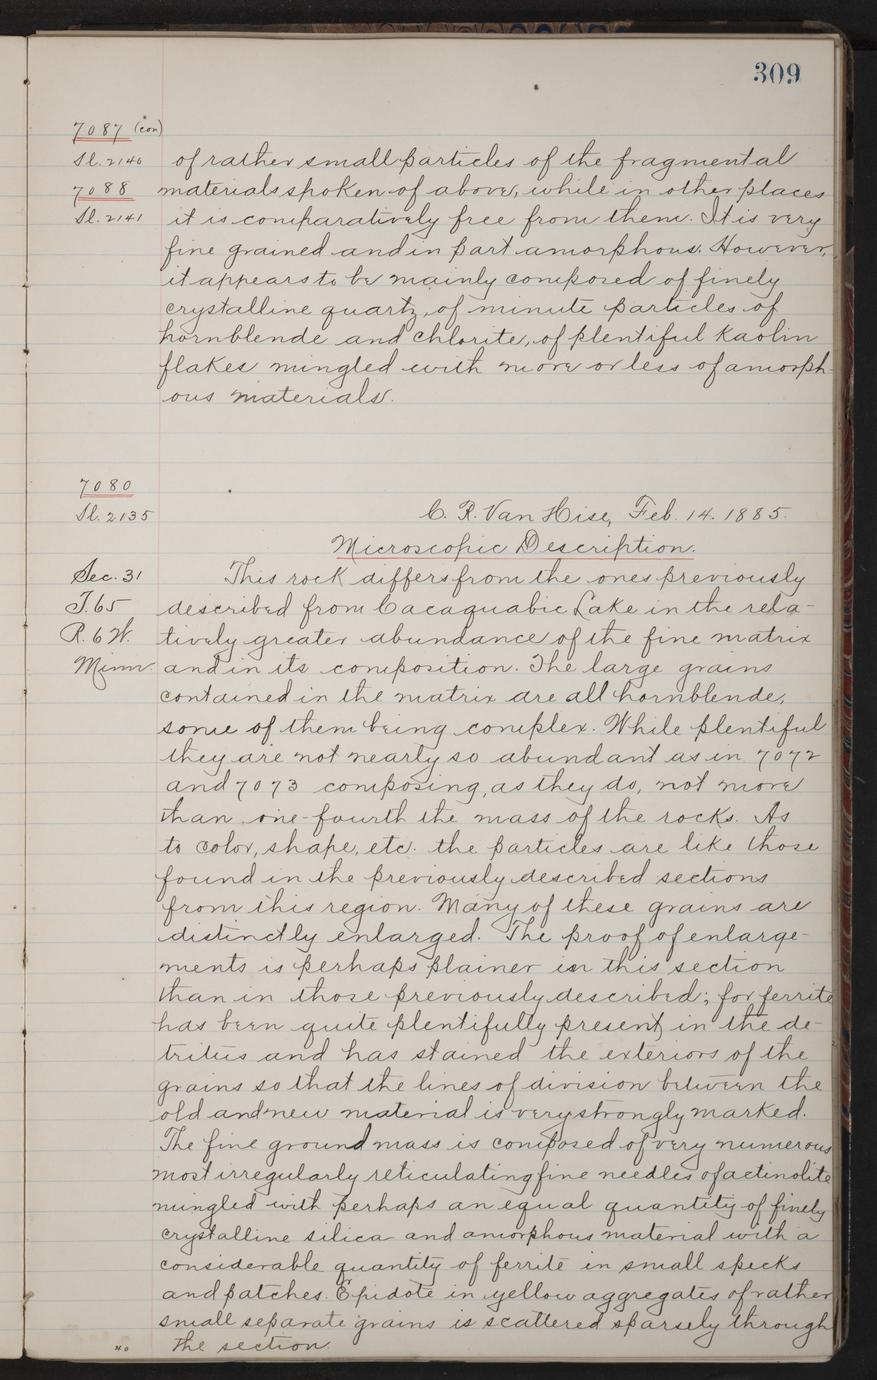 309
7087 (con)
Sl. 2140 of rather small particles of the fragmental
7088 materials spoken of above, while in other places
Sl. 2141 it is comparatively free from them. It is very
fine grained and in part amorphous. However,
it appears to be mainly composed of finely
crystalline quartz, of minute particles of
hornblende and chlorite, of plentiful kaolin
flakes mingled with more or less of amorph-
ous materials.
7080
Sl. 2135 C. R. Van Hise, Feb. 14. 1885.
Microscopic Description.
Sec. 31 This rock differs from the ones previously
T. 65 described from Cacaquabic Lake in the rela-
R. 6 W. tively greater abundance of the fine matrix
Minn. and in its composition. The large grains
contained in the matrix are all hornblende,
some of them being complex. While plentiful
they are not nearly so abundant as in 7072
and 7073 composing, as they do, not more
than one-fourth the mass of the rocks. As
to color, shape, etc. the particles are like those
found in the previously described sections
from this region. Many of these grains are
distinctly enlarged. The proof of enlarge-
ments is perhaps plainer in this section
than in those previously described; for ferrite
has been quite plentifully present in the de-
tritus and has stained the exteriors of the
grains so that the lines of division between the
old and new material is very strongly marked.
The fine ground mass is composed of very numerous
most irregularly reticulating fine needles of actinolite
mingled with perhaps an equal quantity of finely
crystalline silica and amorphous material with a
considerable quantity of ferrite in small specks
and patches. Epidote in yellow aggregates of rather
small separate grains is scattered sparsely through
the section.